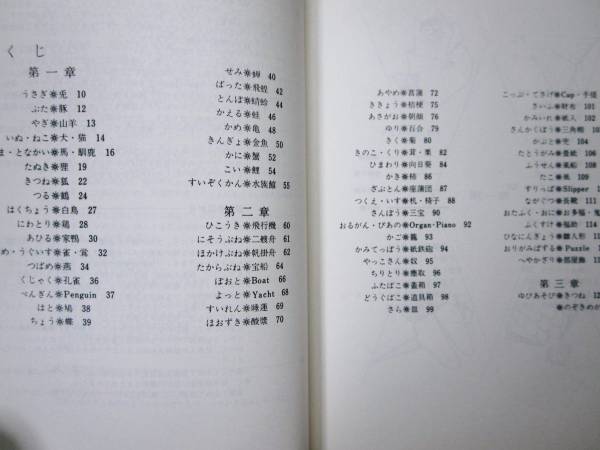 くじ
第一章
うさぎ❋兎 10
ぶた❋豚 12
やぎ❋山羊 13
いぬ・ねこ❋犬・猫 14
ま・となかい❋馬・馴鹿 16
たぬき❋狸 19
きつね❋狐 22
つる❋鶴 24
はくちょう❋白鳥 27
にわとり❋鶏 28
あひる❋家鴨 30
め・うぐいす❋雀・鴬 32
つばめ❋燕 34
くじゃく❋孔雀 36
ぺんぎん❋Penguin 37
はと❋鳩 38
ちょう❋蝶 39
せみ❋蝉 40
ばった❋飛蝗 42
とんぼ❋蜻蛉 44
かえる❋蛙 46
かめ❋亀 48
きんぎょ❋金魚 50
かに❋蟹 52
こい❋鯉 54
すいぞくかん❋水族館 55
第二章
ひこうき❋飛行機 60
にそうぶね❋二艘舟 61
ほかけぶね❋帆掛舟 62
たからぶね❋宝船 64
ぼおと❋Boat 66
よっと❋Yacht 68
すいれん❋睡蓮 69
ほおずき❋酸漿 70
あやめ❋菖蒲 72
ききょう❋桔梗 74
あさがお❋朝顔 76
ゆり❋百合 79
さく❋菊 80
きのこ・くり❋茸・栗 83
ひまわり❋向日葵 84
かき❋柿 86
ざぶとん❋座蒲団 87
つくえ・いす❋机・椅子 88
さんぼう❋三宝 90
おるがん・ぴあの❋Organ・Piano 92
かご❋籠 93
かみでっぽう❋紙鉄砲 94
やっこさん❋奴 95
ちりとり❋塵取 96
ふたばこ❋蓋箱 97
どうぐばこ❋道具箱 98
さら❋皿 99
こっぷ・てさげ❋Cup・手提
さいふ❋財布 101
かみいれ❋紙入 102
さんかくぼう❋三角帽
かぶと❋兜 104
たとうがみ❋畳紙
ふうせん❋風船 10
たこ❋凧 109
すりっぱ❋Slipper
ながぐつ❋長靴 11
おたふく・おに❋お多福・鬼
ふくすけ❋福助 11
ひなにんぎょう❋雛人形
おりがみぱずる❋Puzzle
へやかざり❋部屋飾
第三章
ゆびあそび❋きつね 12
❋のぞきめが